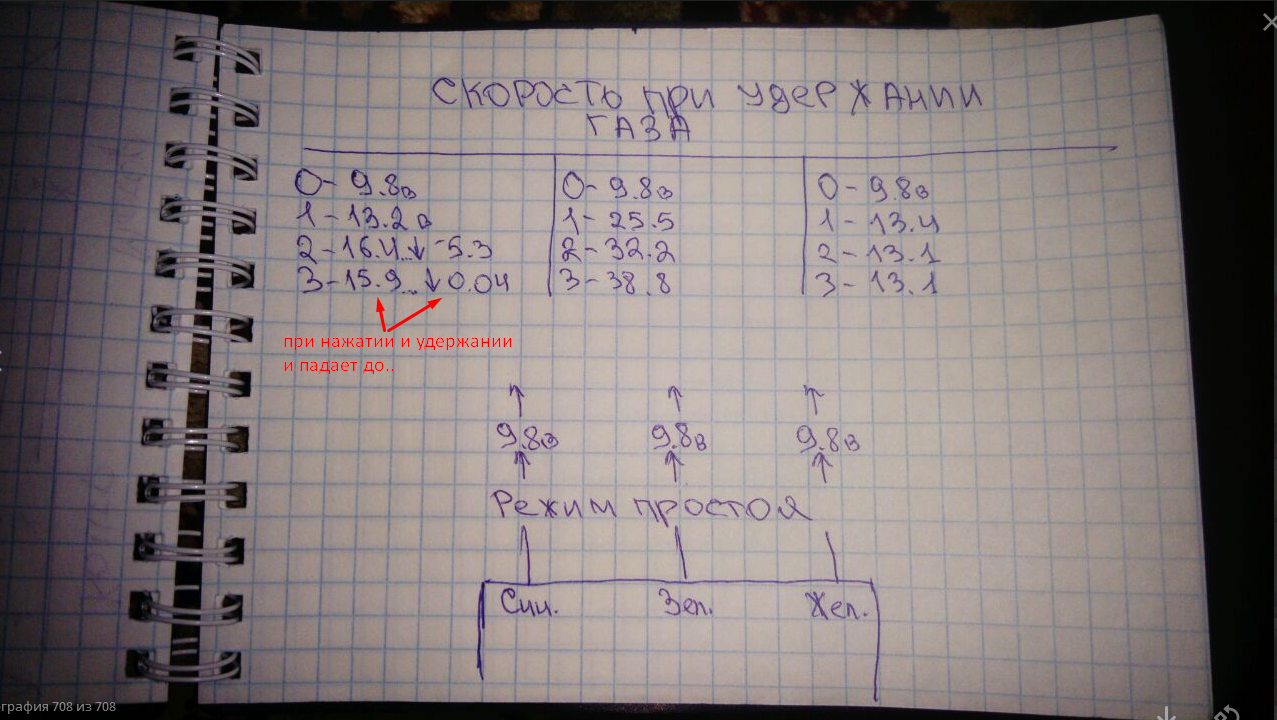 СКОРОСТЬ при удержании
ГАЗА
0- 9.8в
1-13.2в
2-16.4..↓ ~5.3
3-15.9...↓0.04
0- 9.8в
1- 25.5
2- 32.2
3- 38.8
0- 9.8в
1- 13.4
2- 13.1
3- 13.1
при нажатии и удержании
и падает до..
9.8в 9.8в 9.8в
Режим простоя
Син. Зел. Жел.
графия 708 из 708